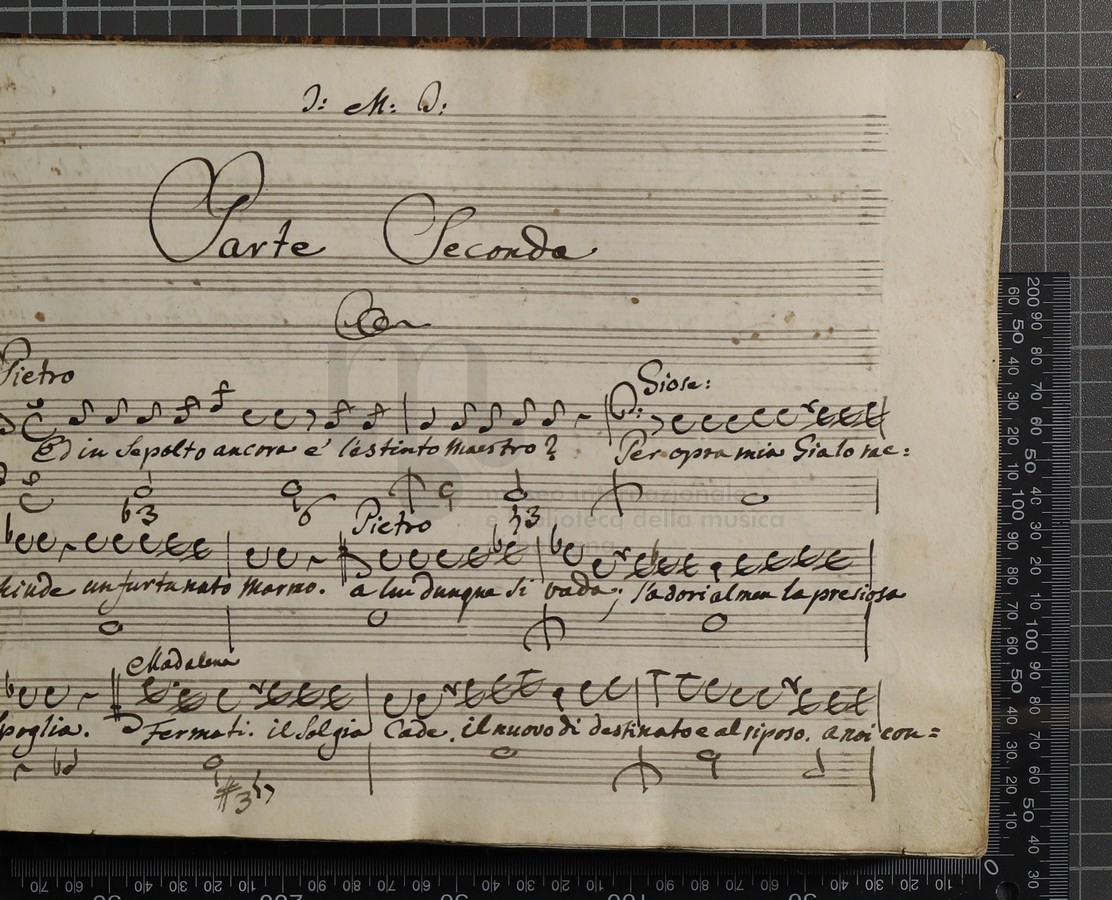 J: M: J:
Parte Seconda
Pietro
Giose:
Ed in Sepolto ancora e' l'estinto Maestro? Per opra mia Gia lo rac:
b3 6 ♮3
Pietro
hiude un furtunato Marmo. a lui dunque si vada; s'adori almen la presiosa
Madalena
spoglia. Fermati. il Sol gia Cade. il nuovo di destinato e al riposo. a noi con=
#3
museo internazionale
e biblioteca della musica